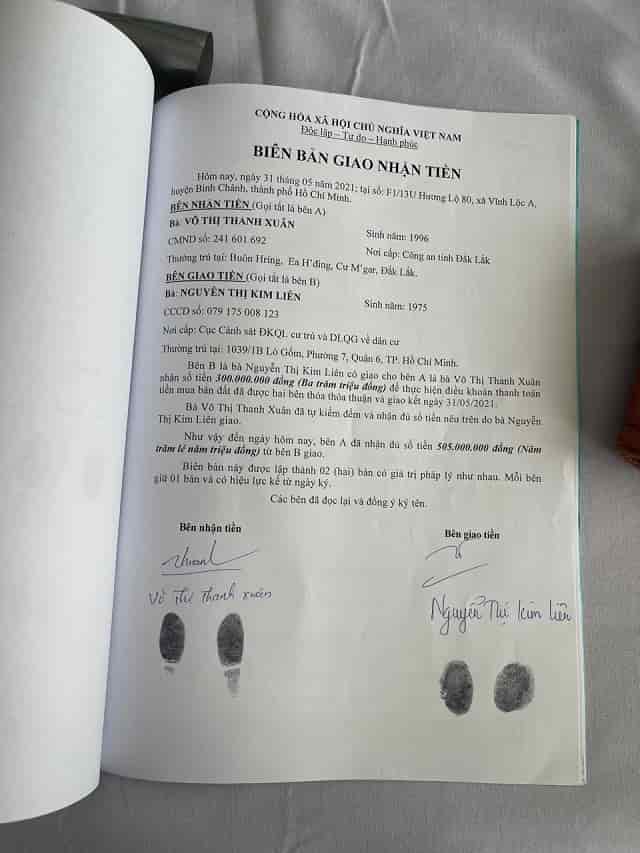 CỘNG HÒA XÃ HỘI CHỦ NGHĨA VIỆT NAM
Độc lập – Tự do – Hạnh phúc
BIÊN BẢN GIAO NHẬN TIỀN
Hôm nay, ngày 31 tháng 05 năm 2021; tại số: F1/13U Hương Lộ 80, xã Vĩnh Lộc A,
huyện Bình Chánh, thành phố Hồ Chí Minh.
BÊN NHẬN TIỀN (Gọi tắt là bên A)
Bà: VÕ THỊ THANH XUÂN
Sinh năm: 1996
CMND số: 241 601 692
Nơi cấp: Công an tỉnh Đắk Lắk
Thường trú tại: Buôn Hring, Ea H'đing, Cư M'gar, Đắk Lắk.
BÊN GIAO TIỀN (Gọi tắt là bên B)
Bà: NGUYỄN THỊ KIM LIÊN
Sinh năm: 1975
CCCD số: 079 175 008 123
Nơi cấp: Cục Cảnh sát ĐKQL cư trú và DLQG về dân cư
Thường trú tại: 1039/1B Lò Gốm, Phường 7, Quận 6, TP. Hồ Chí Minh.
Bên B là bà Nguyễn Thị Kim Liên có giao cho bên A là bà Võ Thị Thanh Xuân
nhận số tiền 300.000.000 đồng (Ba trăm triệu đồng) để thực hiện điều khoản thanh toán
tiền mua bán đất đã được hai bên thỏa thuận và giao kết ngày 31/05/2021.
Bà Võ Thị Thanh Xuân đã tự kiểm đếm và nhận đủ số tiền nêu trên do bà Nguyễn
Thị Kim Liên giao.
Như vậy đến ngày hôm nay, bên A đã nhận đủ số tiền 505.000.000 đồng (Năm
trăm lẻ năm triệu đồng) từ bên B giao.
Biên bản này được lập thành 02 (hai) bản có giá trị pháp lý như nhau. Mỗi bên
giữ 01 bản và có hiệu lực kể từ ngày ký.
Các bên đã đọc lại và đồng ý ký tên.
Bên nhận tiền
Bên giao tiền
Võ Thị Thanh Xuân
Nguyễn Thị Kim Liên